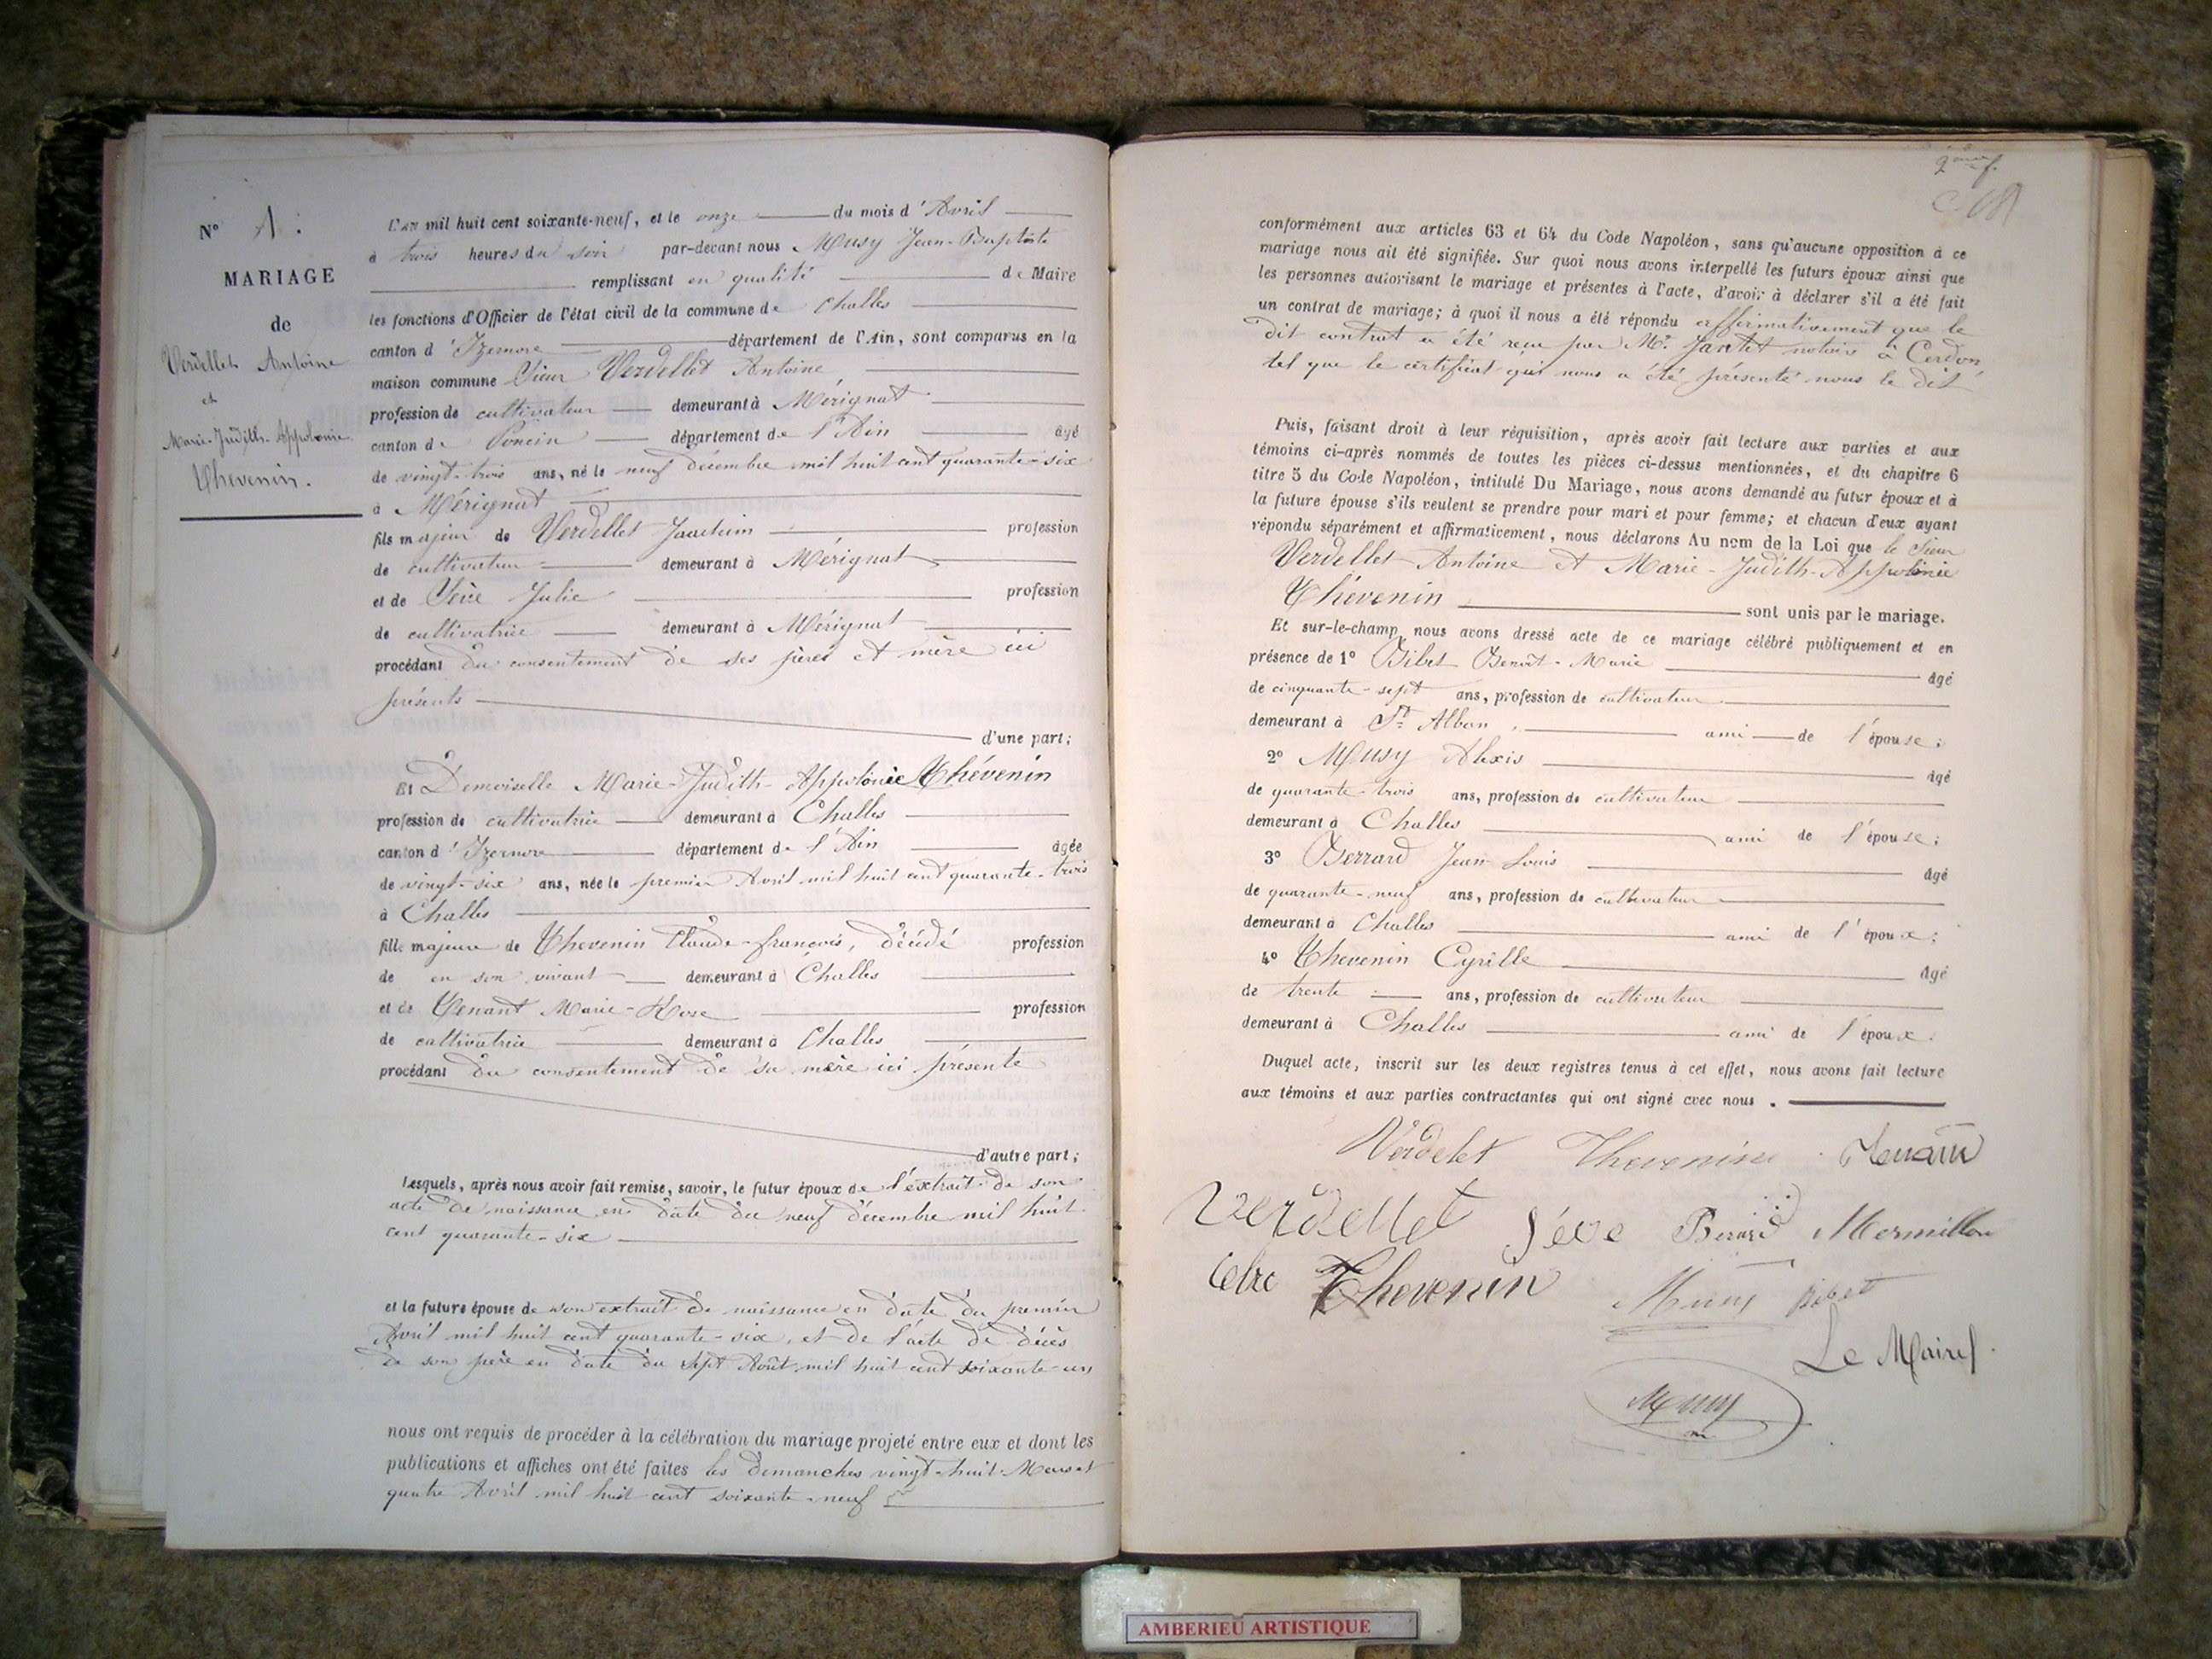 N° 1 :
MARIAGE
de
Verdellet Antoine
et
Marie-Judith-Appolonie
Thevenin.
L'an mil huit cent soixante-neuf, et le onze du mois d'Avril
à trois heures du soir par-devant nous Musy Jean-Baptiste
remplissant en qualité de Maire
les fonctions d'Officier de l'état civil de la commune de Challes
canton d'Izernore département de l'Ain, sont comparus en la
maison commune Sieur Verdellet Antoine
profession de cultivateur demeurant à Mérignat
canton de Poncin département de l'Ain âgé
de vingt-trois ans, né le neuf décembre mil huit cent quarante-six
à Mérignat
fils majeur de Verdellet Joachim profession
de cultivateur demeurant à Mérignat
et de Sève Julie profession
de cultivatrice demeurant à Mérignat
procédant du consentement de ses père et mère ici
présents
d'une part;
Et Demoiselle Marie-Judith-Appolonie Thévenin
profession de cultivatrice demeurant à Challes
canton d'Izernore département de l'Ain âgée
de vingt-six ans, née le premier Avril mil huit cent quarante-trois
à Challes
fille majeure de Thevenin Claude-françois, décédé profession
de en son vivant demeurant à Challes
et de Tenant Marie-Rose profession
de cultivatrice demeurant à Challes
procédant du consentement de sa mère ici présente
d'autre part;
Lesquels, après nous avoir fait remise, savoir, le futur époux de l'extrait de son
acte de naissance en date du neuf décembre mil huit
cent quarante-six
et la future épouse de son extrait de naissance en date du premier
Avril mil huit cent quarante-six, et de l'acte de décès
de son père en date du sept Août mil huit cent soixante-un
nous ont requis de procéder à la célébration du mariage projeté entre eux et dont les
publications et affiches ont été faites les dimanches vingt-huit Mars et
quatre Avril mil huit cent soixante-neuf
conformément aux articles 63 et 64 du Code Napoléon, sans qu'aucune opposition à ce
mariage nous ait été signifiée. Sur quoi nous avons interpellé les futurs époux ainsi que
les personnes autorisant le mariage et présentes à l'acte, d'avoir à déclarer s'il a été fait
un contrat de mariage; à quoi il nous a été répondu affirmativement que le
dit contrat a été reçu par Mr. Jantet notaire à Cerdon,
tel que le certificat qui nous a été présenté nous le dit
Puis, faisant droit à leur réquisition, après avoir fait lecture aux parties et aux
témoins ci-après nommés de toutes les pièces ci-dessus mentionnées, et du chapitre 6
titre 5 du Code Napoléon, intitulé Du Mariage, nous avons demandé au futur époux et à
la future épouse s'ils veulent se prendre pour mari et pour femme; et chacun d'eux ayant
répondu séparément et affirmativement, nous déclarons Au nom de la Loi que le Sieur
Verdellet Antoine et Marie-Judith-Appolinie
Thévenin sont unis par le mariage.
Et sur-le-champ nous avons dressé acte de ce mariage célébré publiquement et en
présence de 1° Bibet Benoît-Marie âgé
de cinquante-sept ans, profession de cultivateur
demeurant à St Alban, ami de l'épouse;
2° Musy Alexis âgé
de quarante-trois ans, profession de cultivateur
demeurant à Challes ami de l'épouse;
3° Berrard Jean-Louis âgé
de quarante-neuf ans, profession de cultivateur
demeurant à Challes ami de l'époux;
4° Thevenin Cyrille âgé
de trente ans, profession de cultivateur
demeurant à Challes ami de l'époux.
Duquel acte, inscrit sur les deux registres tenus à cet effet, nous avons fait lecture
aux témoins et aux parties contractantes qui ont signé avec nous.
Verdelet Thevenin Tenant
Verdellet Sève Berard Mermillon
Thevenin Musy Bibet
Le Maire
Musy
AMBERIEU ARTISTIQUE